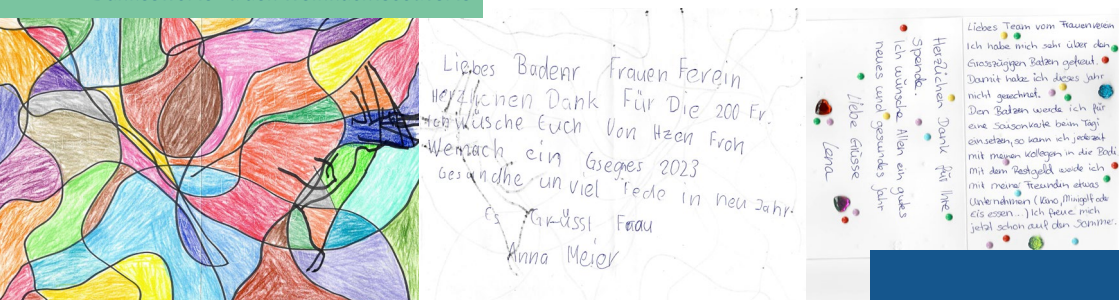 Liebes Badenr Frauen Ferein
Herzlichen Dank Für Die 200 Fr.
Ich Wüsche Euch Von Hzen Froh
Weinach ein Gsegnes 2023
Gesundhe un viel rede in neu Jahr.
Es Grüssl Frau
Anna Meier
Herzlichen Dank für Ihre
Spende.
Ich wünsche Allen ein gutes
neues und gesundes Jahr
Liebe Grüsse
Lena
Liebes Team vom Frauenverein
Ich habe mich sehr über den
Grosszügigen Batzen gefreut.
Damit habe ich dieses Jahr
nicht gerechnet.
Den Batzen werde ich für
eine Saisonkarte beim Tägi
einsetzen, so kann ich jederzeit
mit meinen Kollegen in die Badi.
Mit dem Restgeld werde ich
mit meiner Freundin etwas
Unternehmen (Kino, Minigolf ode
Eis essen...) Ich freue mich
jetzt schon auf den Sommer.